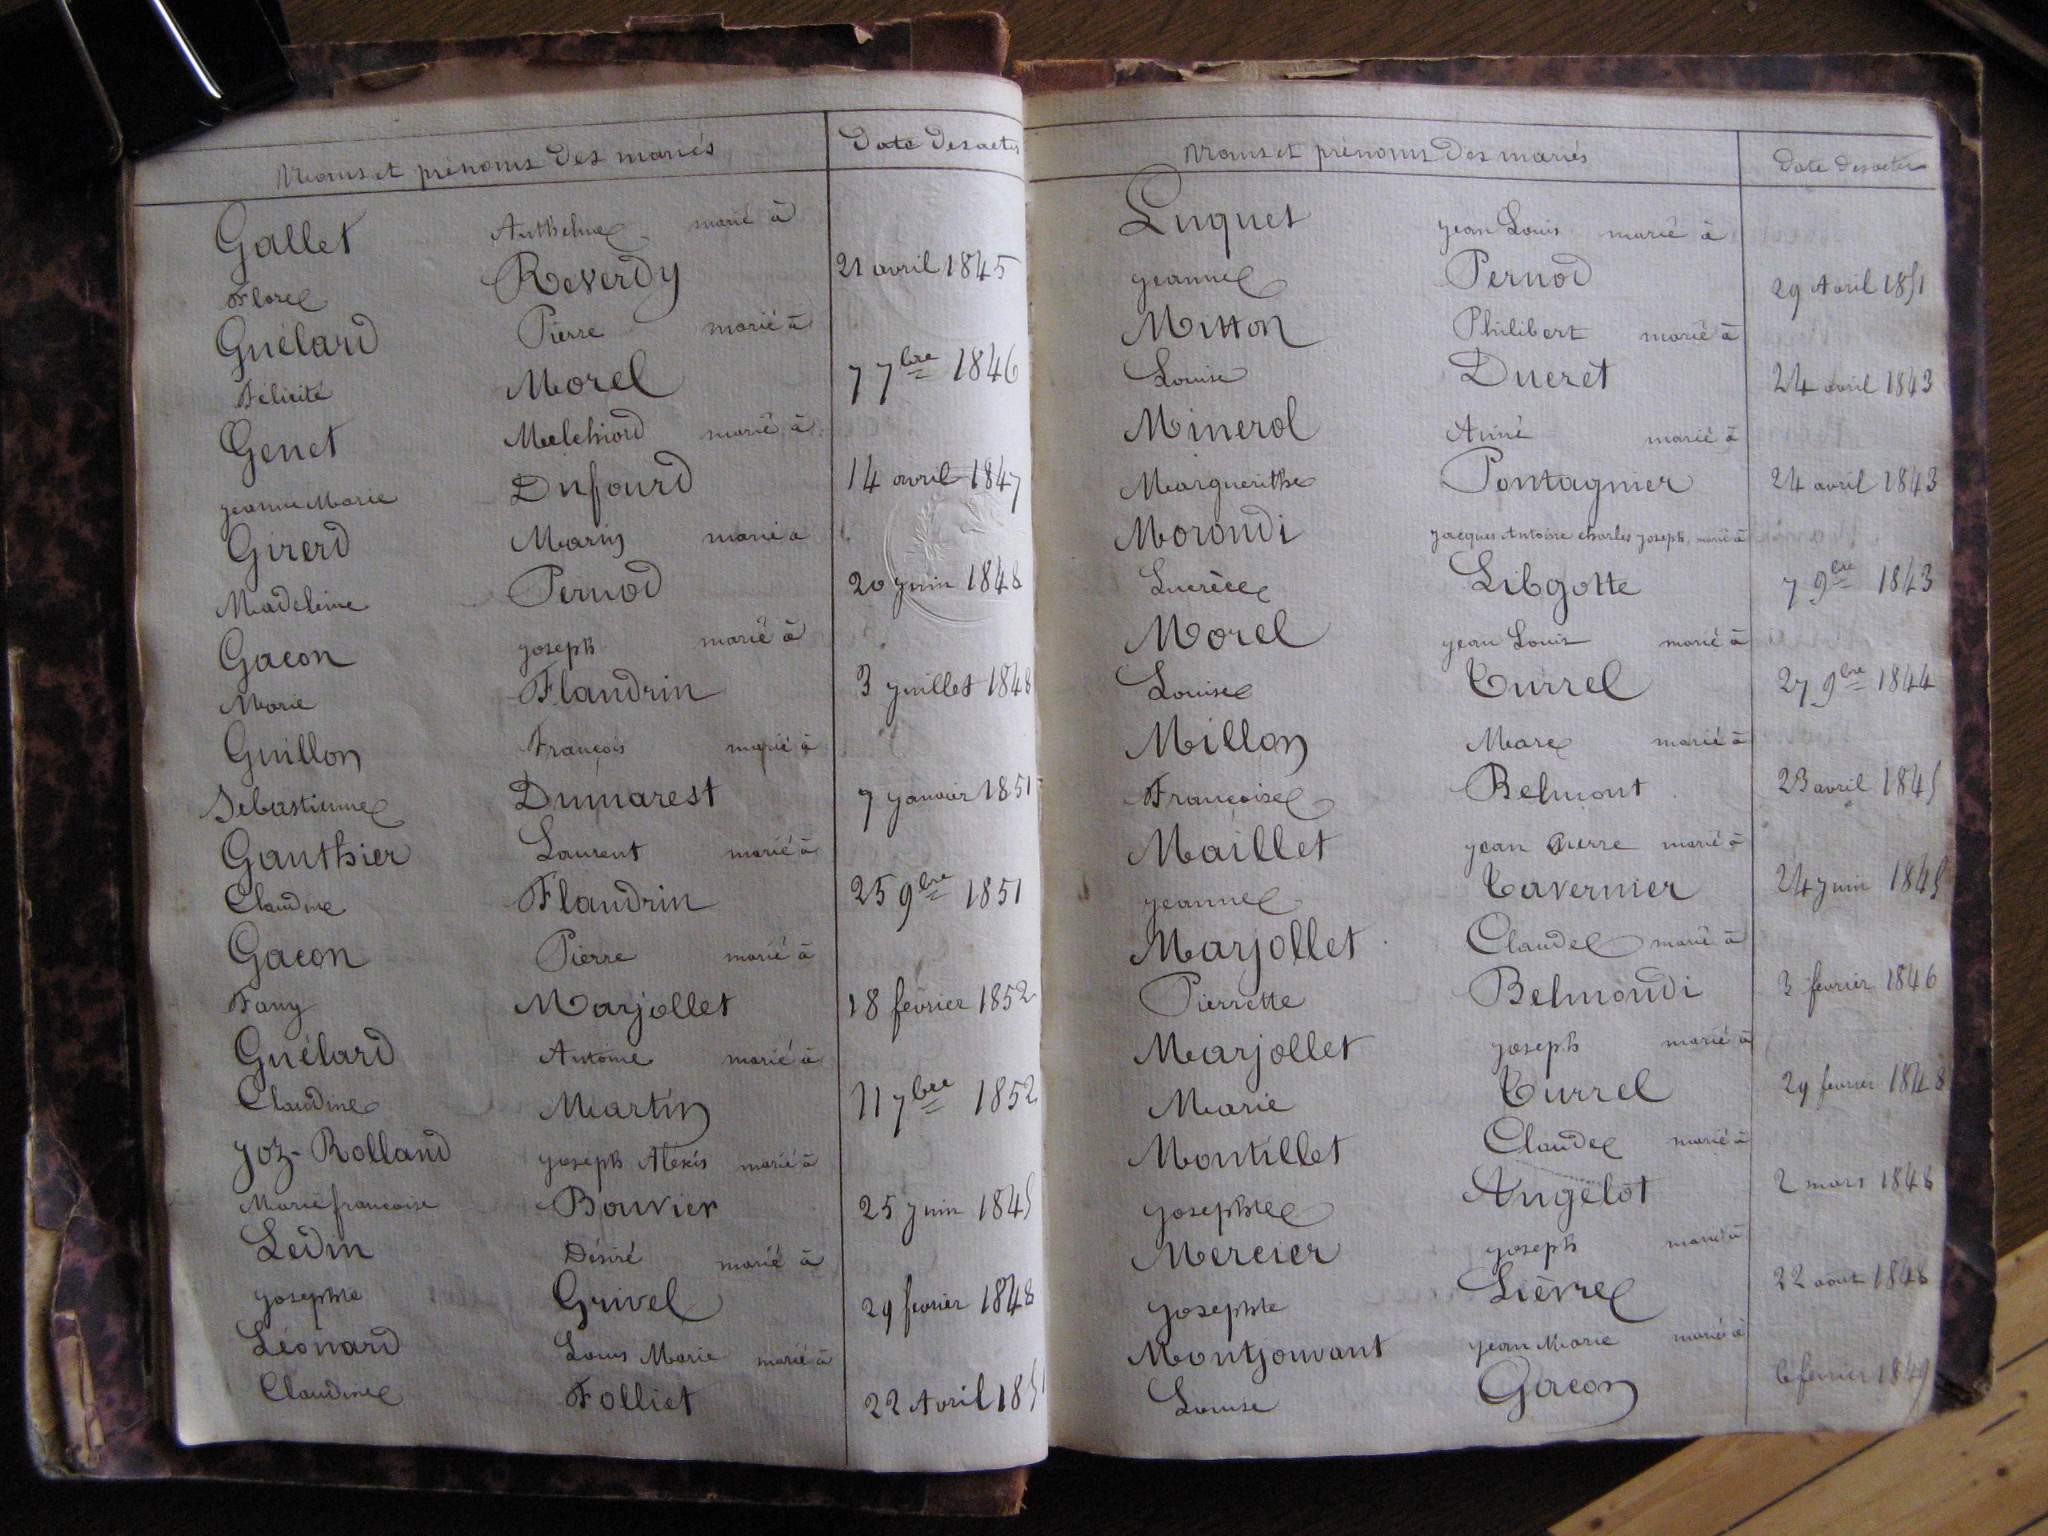 Noms et prénoms des mariés Date des actes
Gallet Anthelme marié à
Flore Reverdy 21 avril 1845
Guélard Pierre marié à
Félicité Morel 7 7bre 1846
Genet Melchiord marié à
jeanne Marie Dufourd 14 avril 1847
Girerd Marin marié à
Madeleine Pernod 20 juin 1848
Gacon joseph marié à
Marie Flandrin 3 juillet 1848
Guillon François marié à
Sebastienne Dumarest 7 janvier 1851
Gauthier Laurent marié à
Claudine Flandrin 25 9bre 1851
Gacon Pierre marié à
Fany Marjollet 18 février 1852
Guélard Antoine marié à
Claudine Martin 11 7bre 1852
joz-Rolland joseph Alexis marié à
Marie françoise Bouvier 25 juin 1845
Ledin Désiré marié à
josephte Grivel 29 fevrier 1848
Léonard Louis Marie marié à
Claudine Folliet 22 Avril 1851
Noms et prénoms des mariés Date des actes
Luquet jean Louis marié à
jeanne Pernod 29 Avril 1851
Mitton Philibert marié à
Louise Ducret 24 avril 1843
Minerol Aimé marié à
Marguerithe Pontagnier 24 avril 1843
Morondi jacques Antoine charles joseph, marié à
Lucrèce Libgotte 7 9bre 1843
Morel jean Louis marié à
Louise Turrel 27 9bre 1844
Millon Marc marié à
Françoise Belmont 23 avril 1845
Maillet jean Pierre marié à
jeanne Tavernier 24 juin 1845
Marjollet Claude marié à
Pierrette Belmondi 3 fevrier 1846
Marjollet joseph marié à
Marie Turrel 29 fevrier 1848
Montillet Claude marié à
josephte Angelot 2 mars 1848
Mercier joseph marié à
josephte Lièvre 22 aout 1848
Montjouvant jean Marie marié à
Louise Gacon 6 fevrier 1849